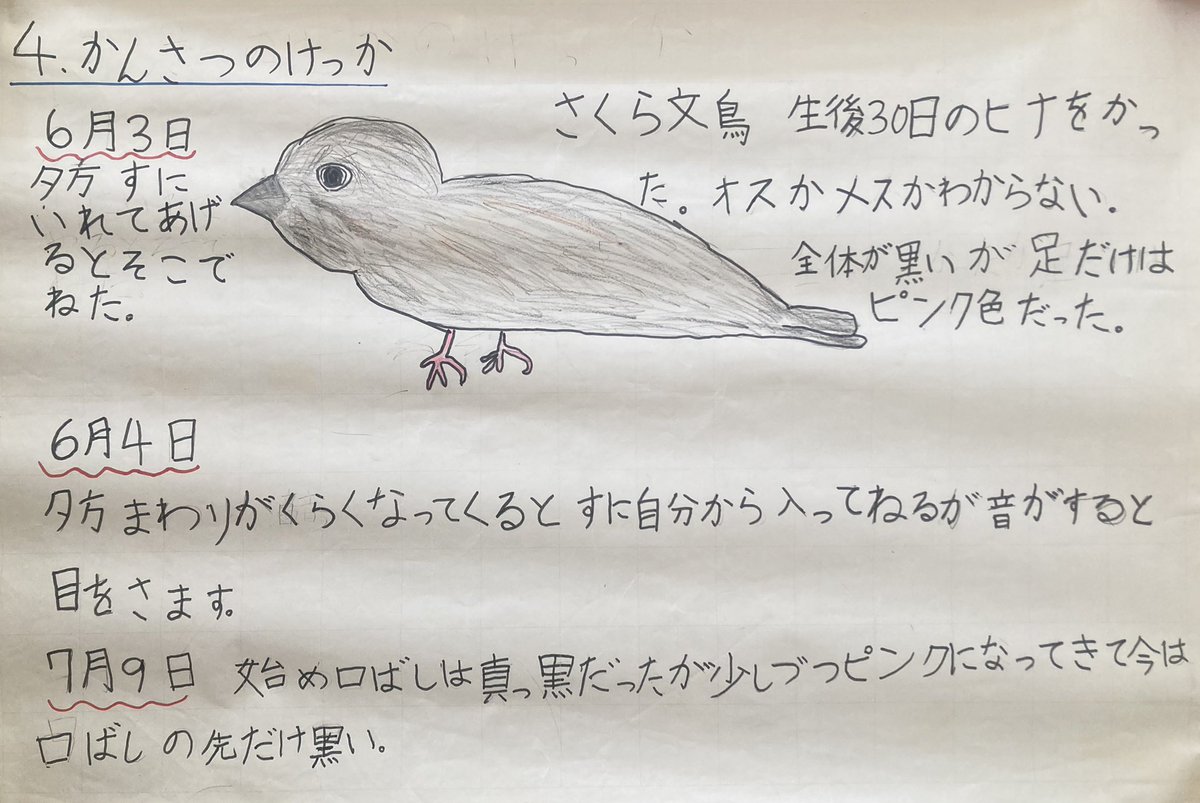 4.かんさつのけっか
6月3日
夕方 すに
いれてあげ
るとそこで
ねた。
さくら文鳥 生後30日のヒナをかっ
た。オスかメスかわからない.
全体が黒いが足だけは
ピンク色だった。
6月4日
夕方まわりがくらくなってくるとすに自分から入ってねるが音がすると
目をさます。
7月9日 始め口ばしは真っ黒だったが少しづつピンクになってきて今は
口ばしの先だけ黒い。